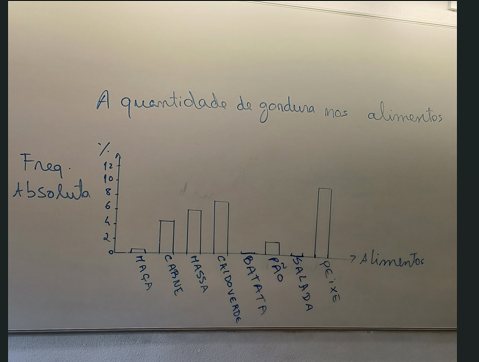 A quantidade de gordura nos alimentos
%
Freq.
Absoluta
12
10
8
6
4
2
0
MAÇA
CARNE
MASSA
CALDO VERDE
BATATA
PÃO
SALADA
PEIXE
Alimentos